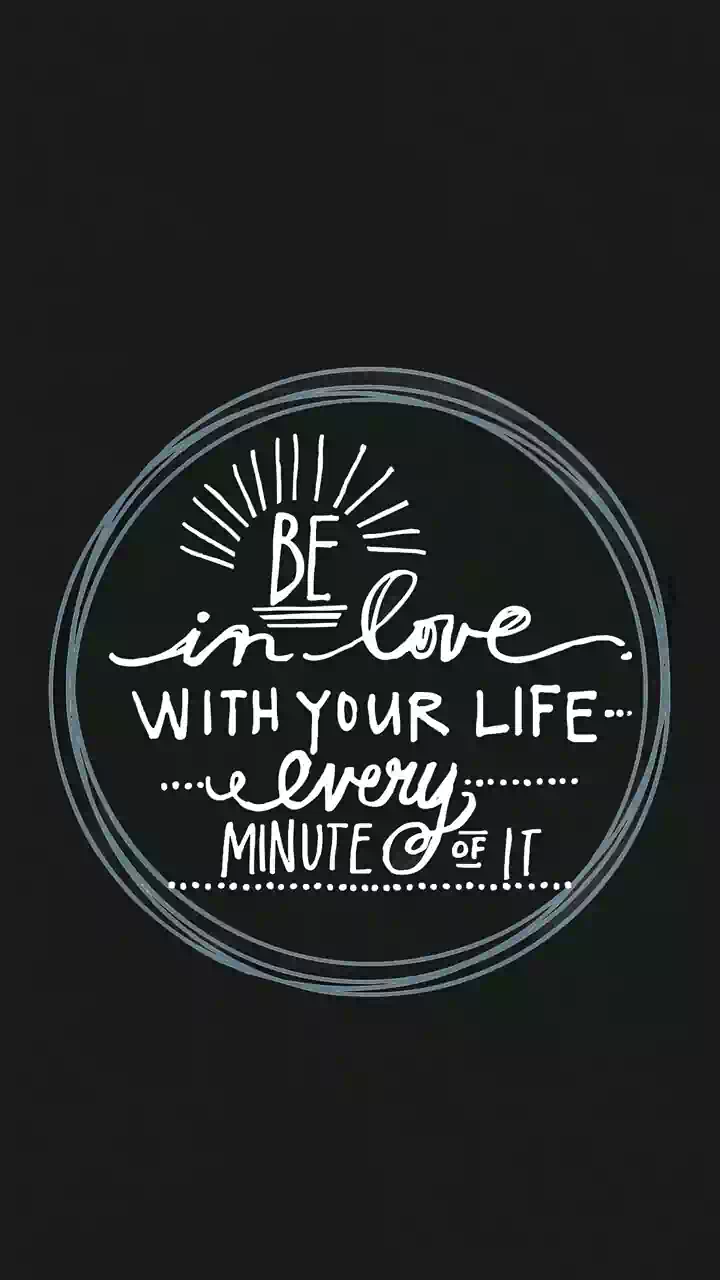 BE
in love
WITH YOUR LIFE...
....every..........
MINUTE OF IT